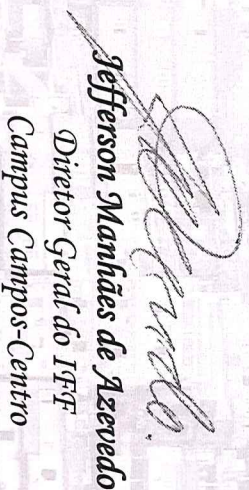 Jefferson Manhães de Azevedo
Diretor Geral do IFF
Campus Campos-Centro